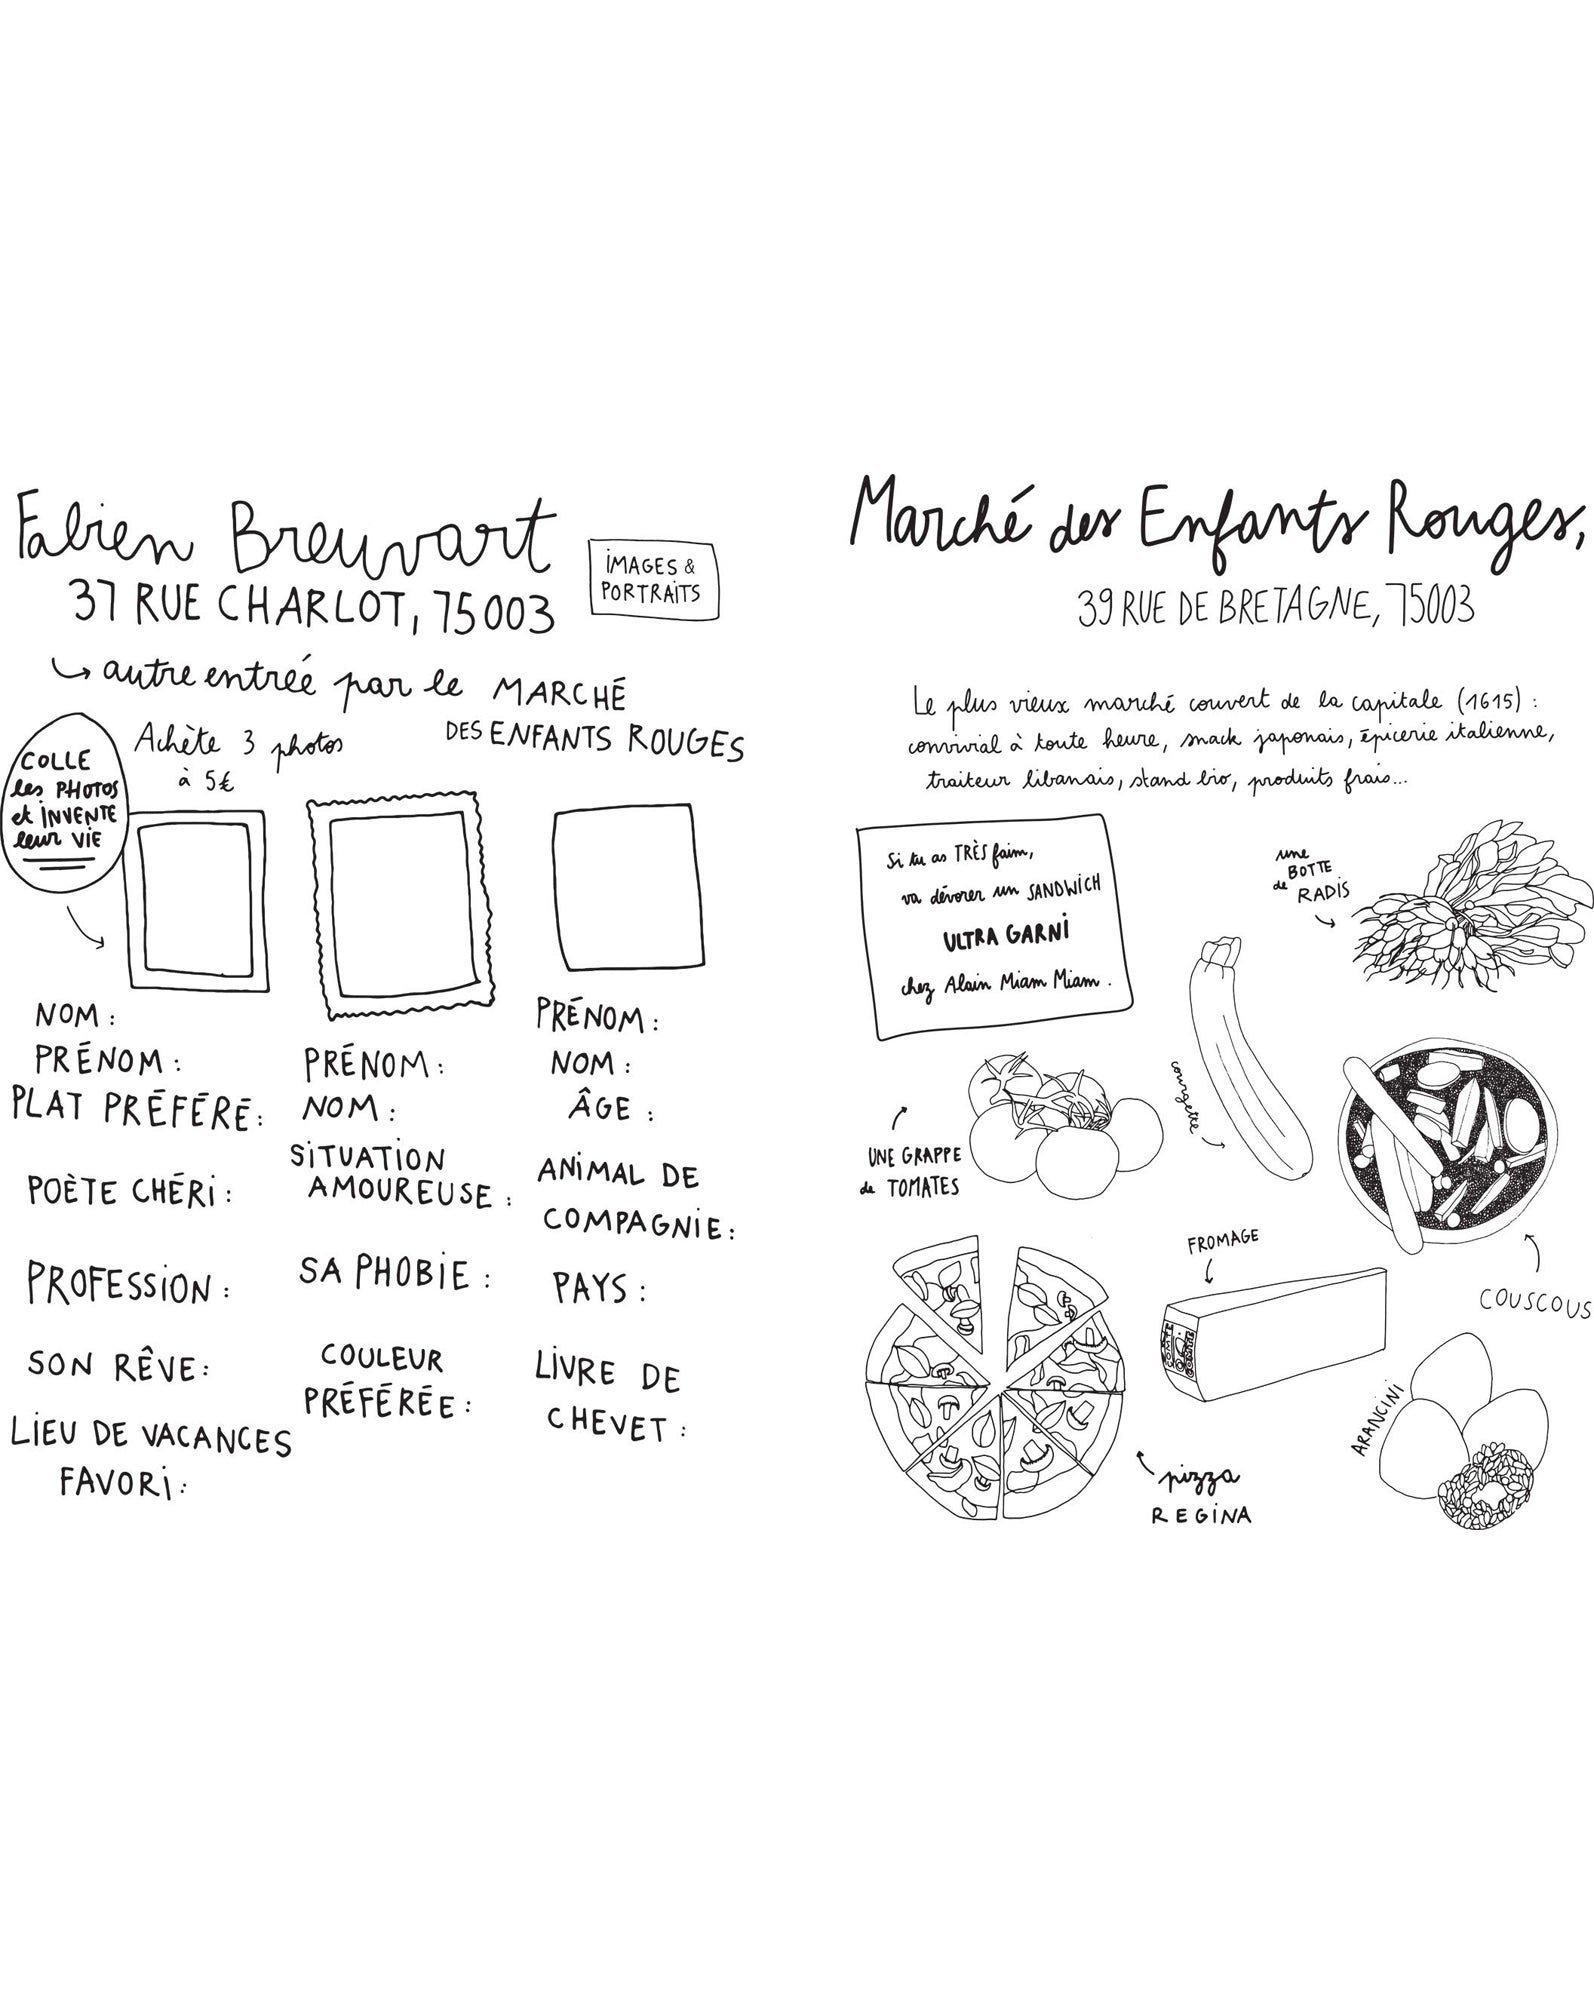 Fabien Breuvart
37 RUE CHARLOT, 75003
IMAGES &
PORTRAITS
autre entrée par le MARCHÉ
DES ENFANTS ROUGES
COLLE
les PHOTOS
et INVENTE
leur VIE
Achète 3 photos
à 5€
NOM :
PRÉNOM :
PLAT PRÉFÉRÉ :
POÈTE CHÉRI :
PROFESSION :
SON RÊVE :
LIEU DE VACANCES
FAVORI :
PRÉNOM :
NOM :
SITUATION
AMOUREUSE :
SA PHOBIE :
COULEUR
PRÉFÉRÉE :
PRÉNOM :
NOM :
ÂGE :
ANIMAL DE
COMPAGNIE :
PAYS :
LIVRE DE
CHEVET :
Marché des Enfants Rouges,
39 RUE DE BRETAGNE, 75003
Le plus vieux marché couvert de la capitale (1615) :
convivial à toute heure, snack japonais, épicerie italienne,
traiteur libanais, stand bio, produits frais...
Si tu as TRÈS faim,
va dévorer un SANDWICH
ULTRA GARNI
chez Alain Miam Miam.
une
BOTTE
de RADIS
courgette
UNE GRAPPE
de TOMATES
COUSCOUS
FROMAGE
COMTÉ
COMTÉ
ARANCINI
pizza
REGINA